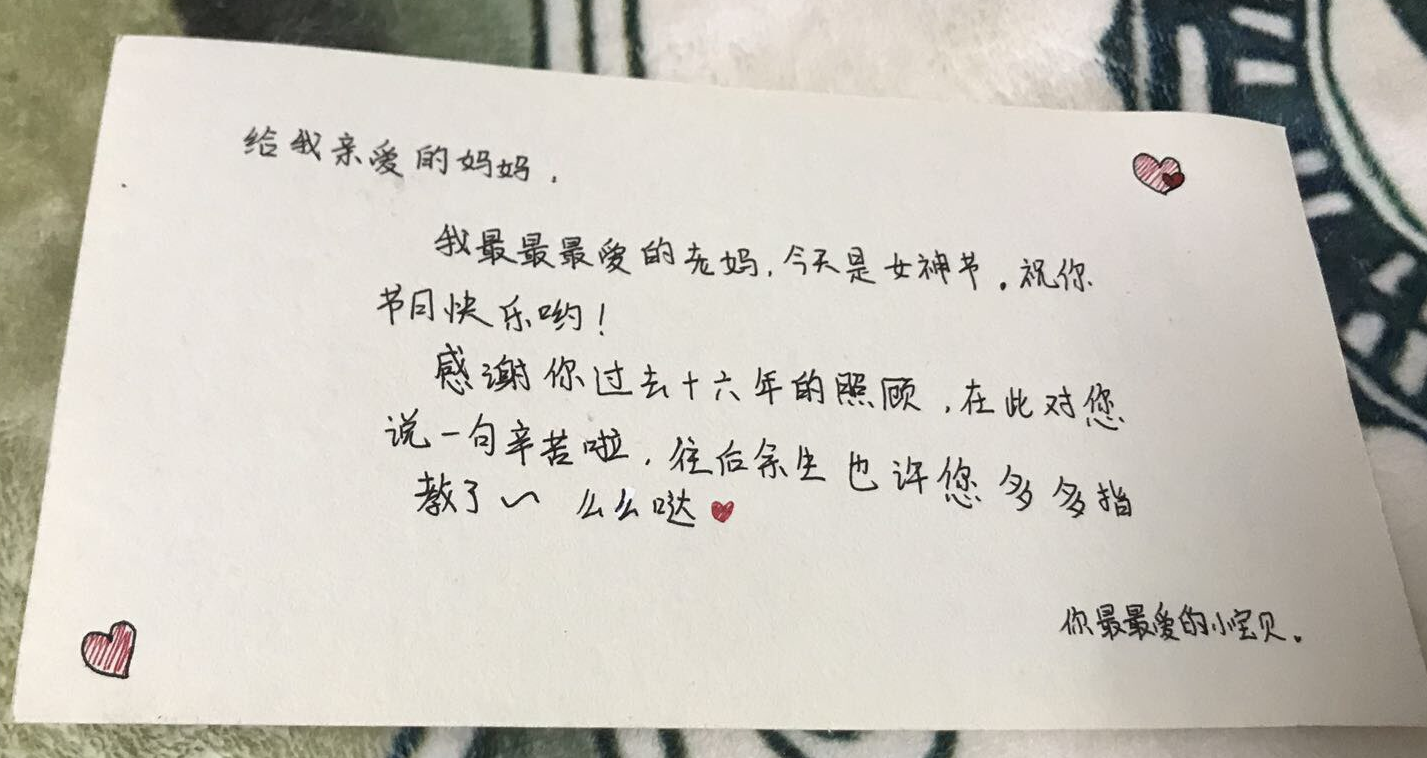 给我亲爱的妈妈.
我最最最爱的老妈,今天是女神节。祝你
节日快乐哟!
感谢你过去十六年的照顾,在此对您
说一句辛苦啦,往后余生也许您多多指
教了~ 么么哒
你最最爱的小宝贝。